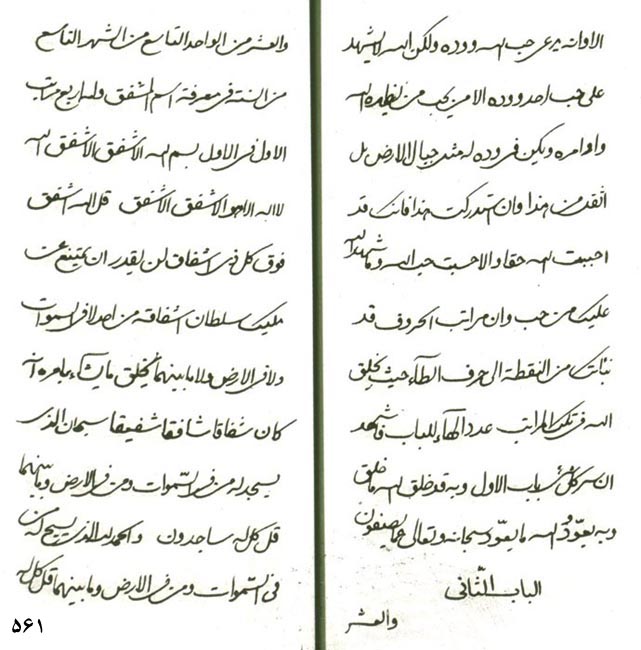 الا وانه يرعى حب الله ووده ولكن الله لا يشهد
على حب احد ووده الا من يحب من يظهره الله
واوامره ويكن فى وده له مثل جبال الارض بل
اثقل من هذا وان تدركت هذا فانك قد
احببت الله حقا والا احببت حب الله وما شهد الله
عليك من حب وان مراتب الحروف قد
من النقطة الى حرف الطاء حيث يخلق
الله فى تلك المراتب عدد الهاء للباب فاشهد
ان سر كلشئ بباب الاول وبه قد خلق الله ما خلق
وبه يعود الله ما يعود سبحانه وتعالى عما يصفون
الباب الثانى
والعشر
والعشر من الواحد التاسع من الشهر التاسع
من السنة فى معرفة اسم المشفق وله اربع مراتب
الاول فى الاول بسم الله الاشفق الاشفق الله
لا اله الا هو الاشفق الاشفق قل الله اشفق
فوق كل ذى اشفاق لن يقدر ان يمتنع عن
مليك سلطان اشفاقه من احد لا فى السموات
ولا فى الارض ولا ما بينهما يخلق ما يشاء بامره انه
كان شفاقا شافقا شفيقا سبحان الذى
يسجد له من فى السموات ومن فى الارض وما بينهما
قل كل له ساجدون والحمد لله الذى يسبح له من
فى السموات ومن فى الارض وما بينهما قل كل له
٥٦١